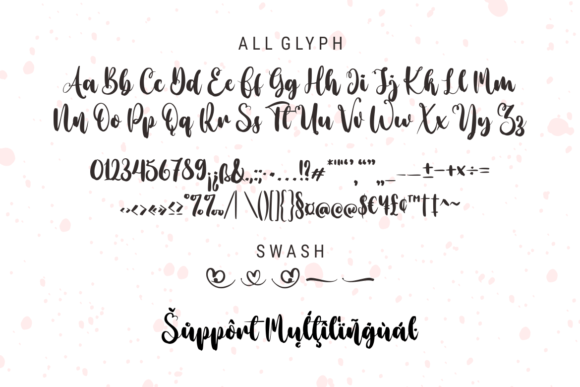 ALL GLYPH
Aa Bb Cc Dd Ee Ff Gg Hh Ii Jj Kk Ll Mm
Nn Oo Pp Qq Rr Ss Tt Uu Vv Ww Xx Yy Zz
0123456789¡¿ß&.,:;·-…!?#*"'‘’“”‚„_–—±-+x÷=
‹›<>«»≤≥°%‰/|\()[]{}§¤@©®$€¥£¢™†‡^~
SWASH
Šůppôrt Mųĺţïľïñġùáŀ